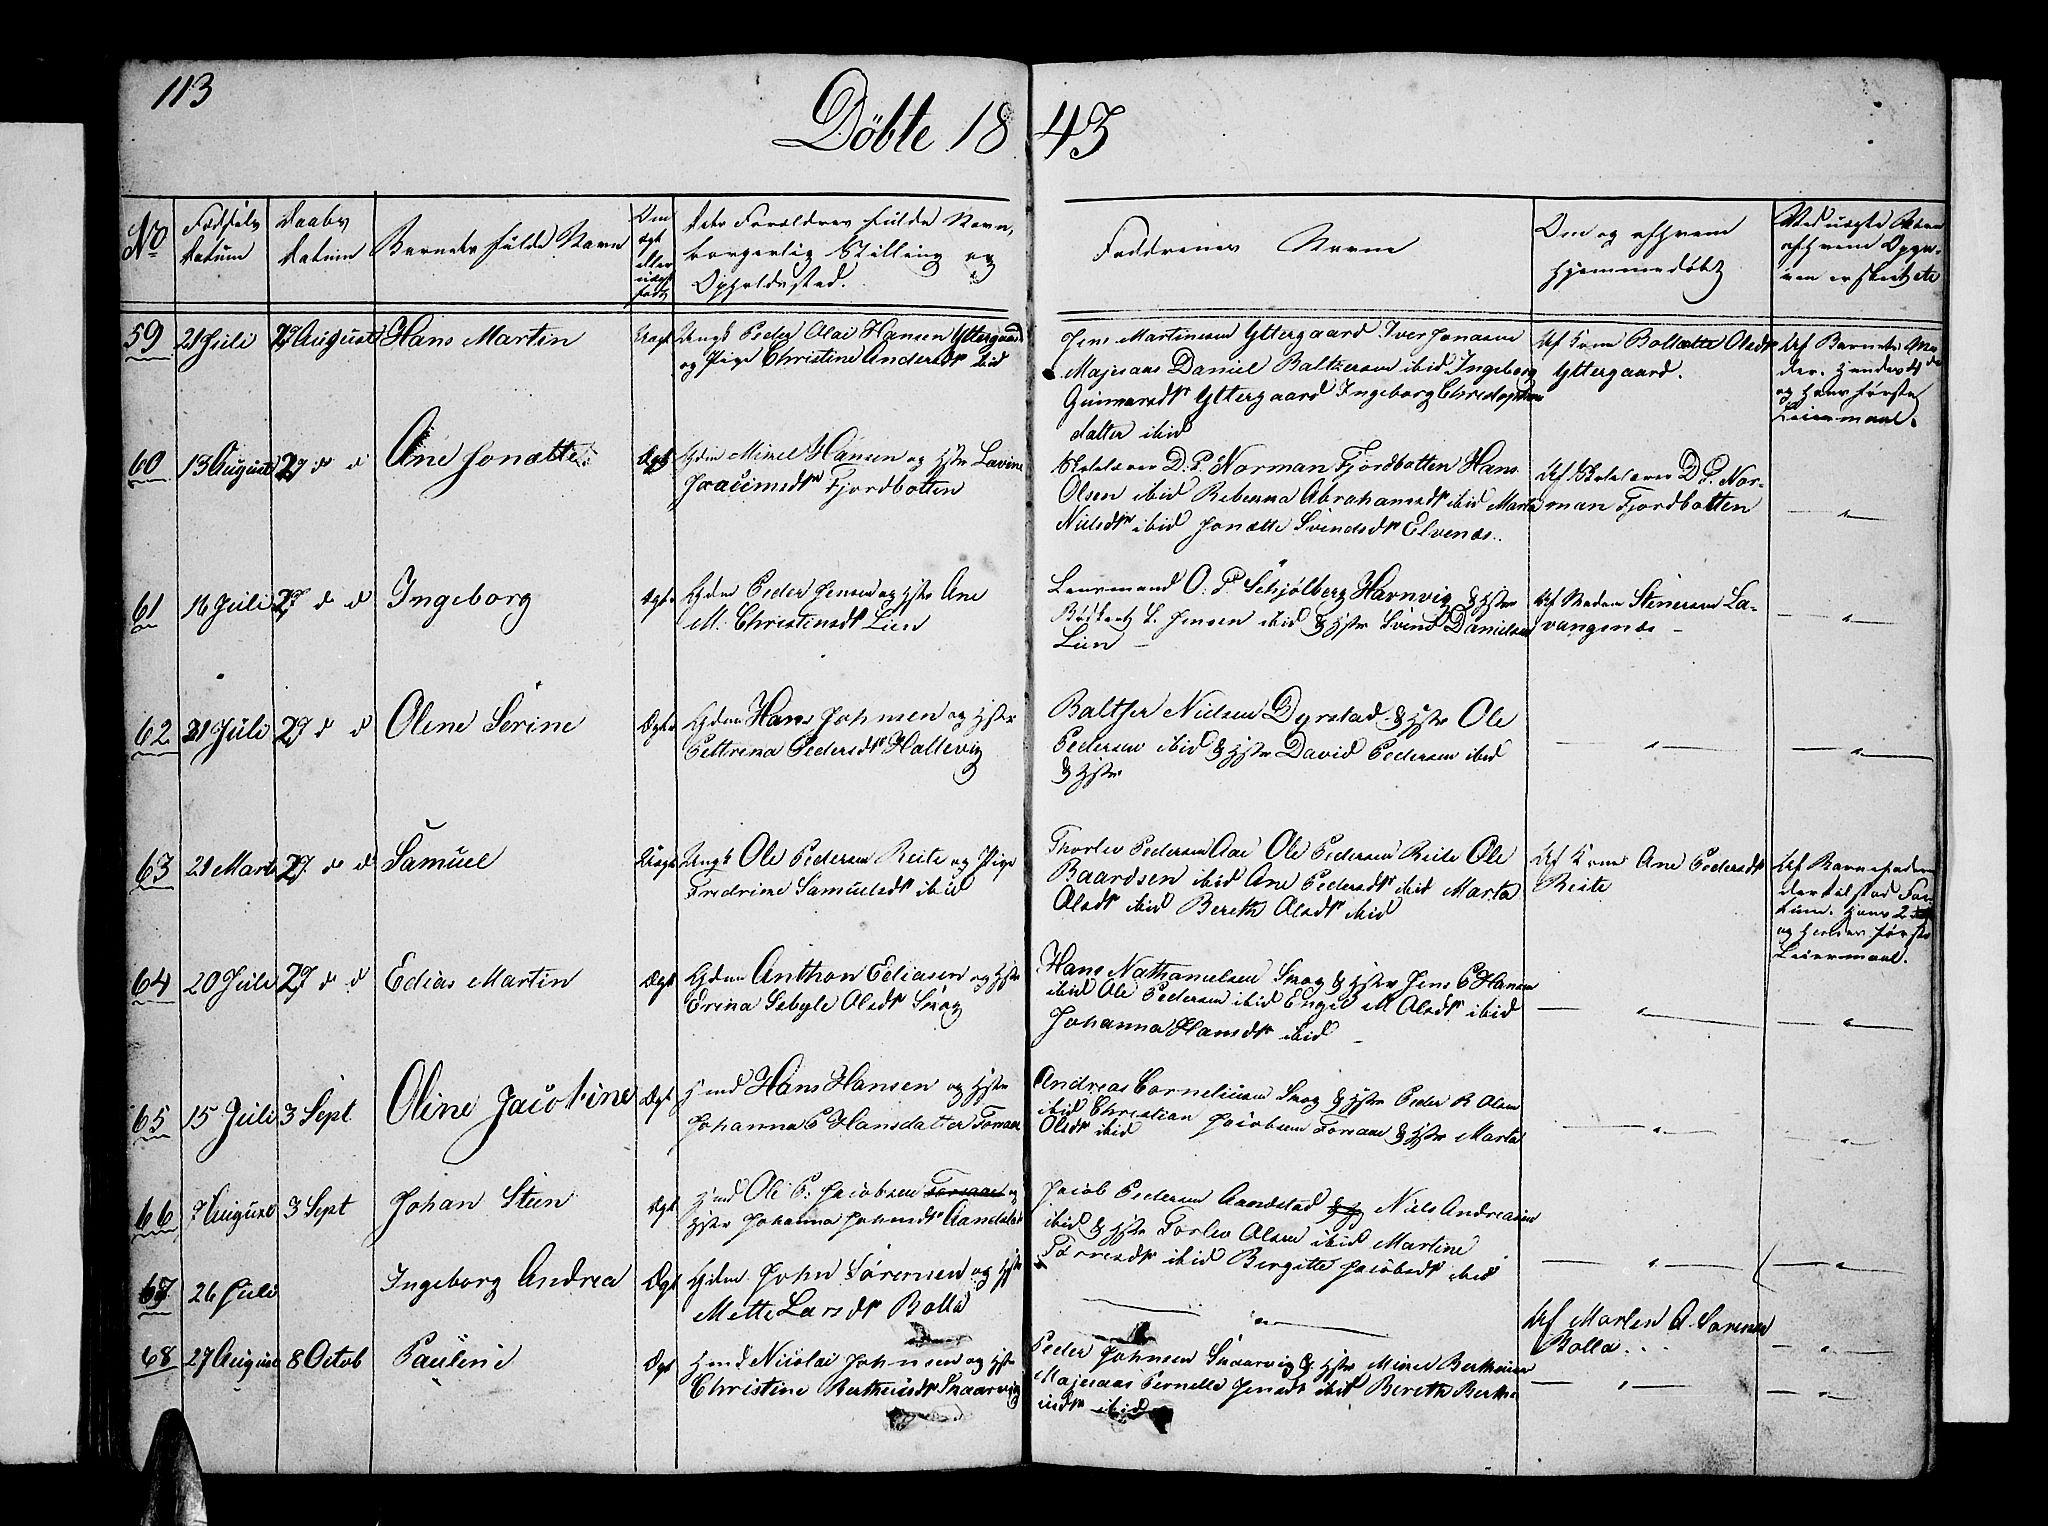 113
Döbte 1843
No
Fødsels Datum
Daabs Datum
Barnets fulde Navn
Om Ægte eller uægte født
Dets Forældres fulde Navn,
borgerlig Stilling og
Opholdssted.
Faddernes Navne
Om og af hvem
hjemmedøbt
59
21 Juli
27 August
Hans Martin
Uægt
Ungk Peder Olai Hansen Yttergaard
og Pige Christine Andersdtr ibid
Jens Martinusen Yttergaard Iver Jonasen
Majesaas Daniel Baltzersen ibid Ingeborg
Gunnarsdtr Yttergaard Ingeborg Christophers
datter ibid
Af Kone Bollette Olsdtr
Yttergaard.
Af Barnets Mo
der. Hendes 4de
og Hans første
Leiermaal.
60
13 August
27 d d
Ane Jonætte
Ægt
Gdm Mikel Hansen og Hstr Lavine
Joacimsdtr Fjordbotten
Skolelærer D. P. Norman Fjordbotten Hans
Olsen ibid Rebecca Abrahamsdtr ibid Marta
Nielsdtr ibid Jonætte Svendsdtr Elvenæs.
Af Skolelærer D. P. Nor-
man Fjordbotten
61
16 Juli
27 d d
Ingeborg
Ægte
Gdm Peder Jensen og Hstr Ane
M. Christensdtr Lien
Lensmand O. P. Schjølberg Havnvig & Hstr
L. Jensen ibid & Hstr Svend Danielsen
Lien
Af Madm Stenersen La-
vangsnæs
62
31 Juli
27 d d
Olene Serine
Ægte
Gdm Hans Johnsen og Hstr
Pettrina Pedersdtr Hallevig
Baltser Nielsen Dyrstad & Hstr Ole
Pedersen ibid & Hstr David Pedersen ibid
& Hstr
63
21 Marts
27 d d
Samuel
Uægt
Ungk Ole Pedersen Reite og Pige
Fredrine Samuelsdtr ibid
Thorlev Pedersen Aae Ole Pedersen Reite Ole
Baardsen ibid Ane Pedersdtr ibid Marta
Olsdtr ibid Bereth Olsdtr ibid
Af Kone Ane Pedersdtr
Reite
Af Barnefaderen
der tilstod Fac-
tum. Hans 2det
og Hendes første
Leiermaal.
64
20 Juli
27 d d
Edias Martin
Ægt
Gdm Anthon Ediasen og Hstr
Erina Sebyle Olsdtr Skog
Hans Nathanielsen Skog & Hstr Jens P Hansen
ibid Ole Pedersen ibid Engel M Olsdtr ibid
Johanna Hansdtr ibid
65
15 Juli
3 Sept
Oline Jacobine
Ægt
Hmd Hans Hansen og Hstr
Johanna P Hansdatter Forsaae
Andreas Corneliusen Skog & Hstr Peder R Olsen
ibid Christian Jacobsen Forsaae & Hstr Marta
Olsdtr ibid
66
7 August
3 Sept
Johan Steen
Ægt
Hmd Ole P. Jacobsen Forsaae og
Hstr Johanna Johnsdtr Aandstad
Jacob Pedersen Aandstad Niels Andreasen
ibid & Hstr Torlev Olsen ibid Martine
Torresdtr ibid Birgitte Jacobsdtr ibid
67
26 Juli
Ingeborg Andrea
Ægt
Gdm John Sørensen og Hstr
Mette Larsdtr Bolla
Af Morten A. Sorensen
Bolla
68
27 August
8 Octob
Pauline
Ægt
Hmd Nicolai Johnsen og Hstr
Christine Bertheusdtr Skaarvig
Peder Johnsen Skaarvig & Hstr Mikel Bertheusen
Majesaas Pernelle Jensdtr ibid Bereth Berthe
usdtr ibid